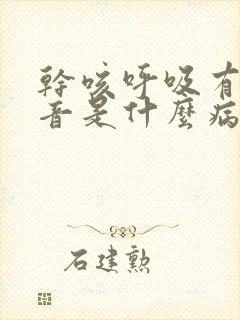 幹咳呼吸有
音是什麼病
石建勲